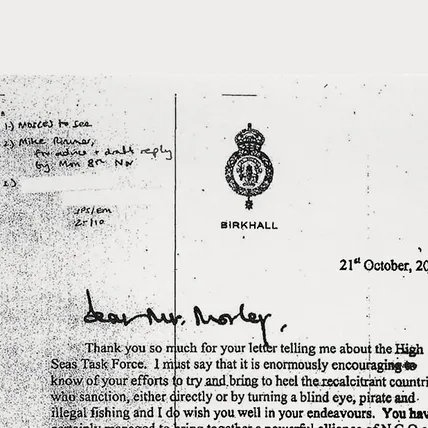 1.) to see
2.) Mike
for advice + draft reply
by Mon 8th Nov
2.)
25/10
BIRKHALL
21st October, 20
Dear Mr. Morley,
Thank you so much for your letter telling me about the High
Seas Task Force. I must say that it is enormously encouraging to
know of your efforts to try and bring to heel the recalcitrant countri
who sanction, either directly or by turning a blind eye, pirate and
illegal fishing and I do wish you well in your endeavours. You hav
certainly managed to bring together a powerful alliance of N.G.O